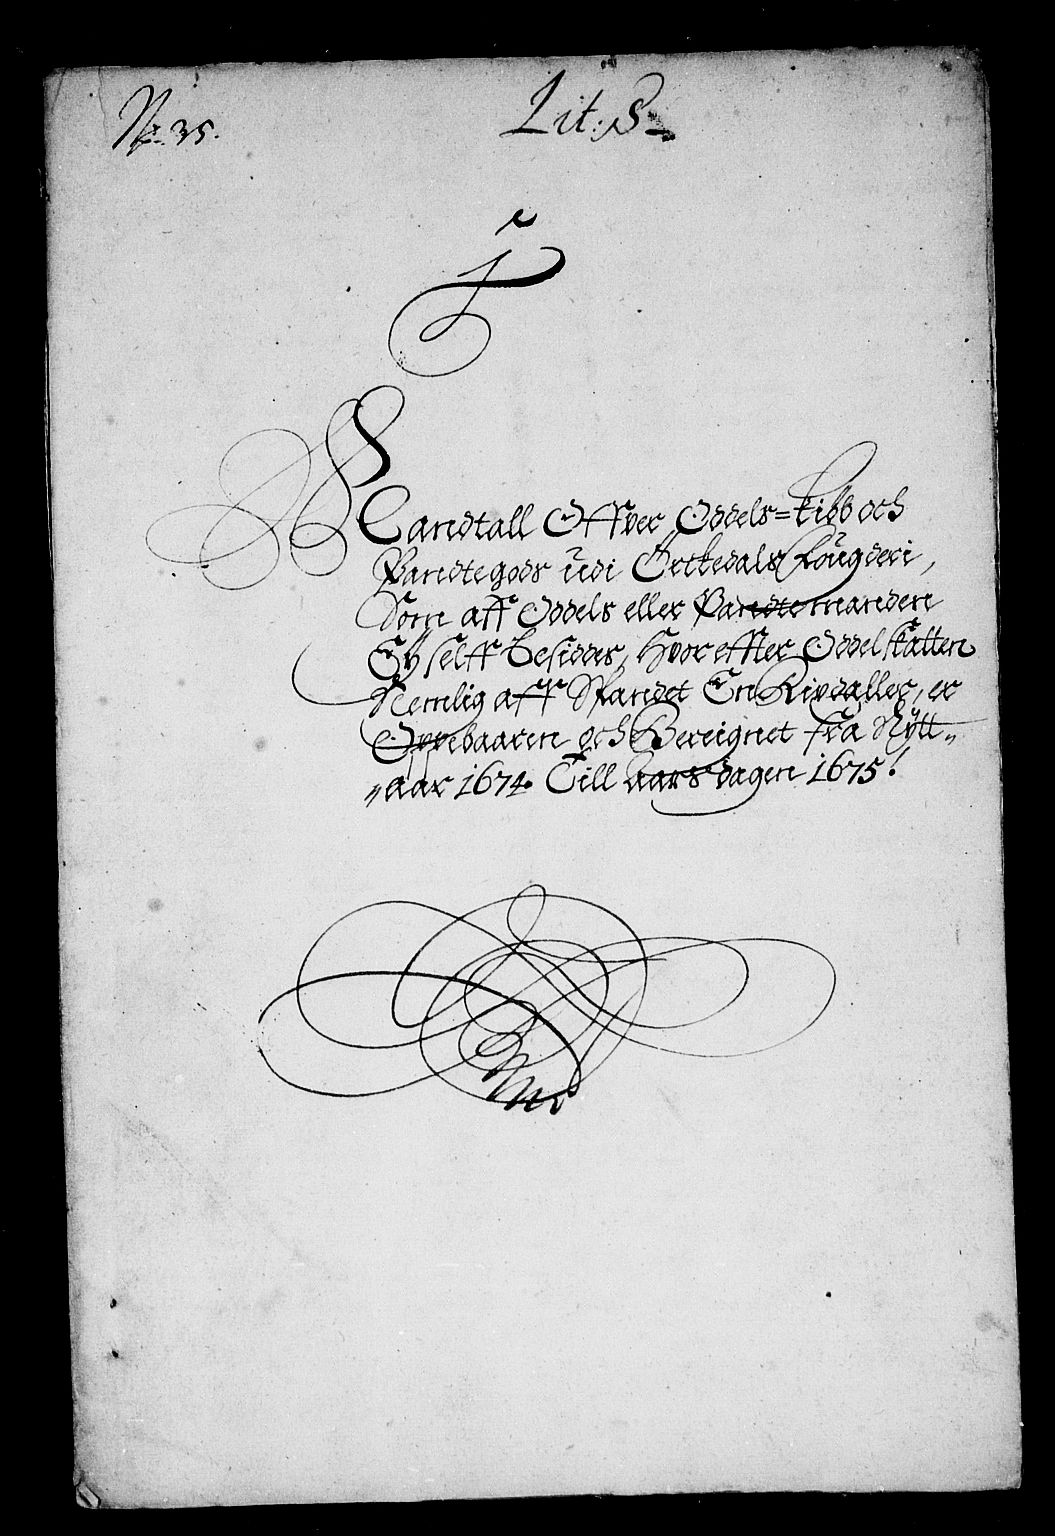 No. 35.
Lit: S
Mandtall Offver Oddels=kiøb och
Pandtegods udi Örckedals Fougderi,
Som aff Oddels eller Pandtemanden
Ey selff besiddes, Hvor effter Oddelskatten
Nemlig aff Spandet En Rixdaller, er
Oppebaaren och Bereignet fra Nytt„
„aar 1674. Till aars dagen 1675.